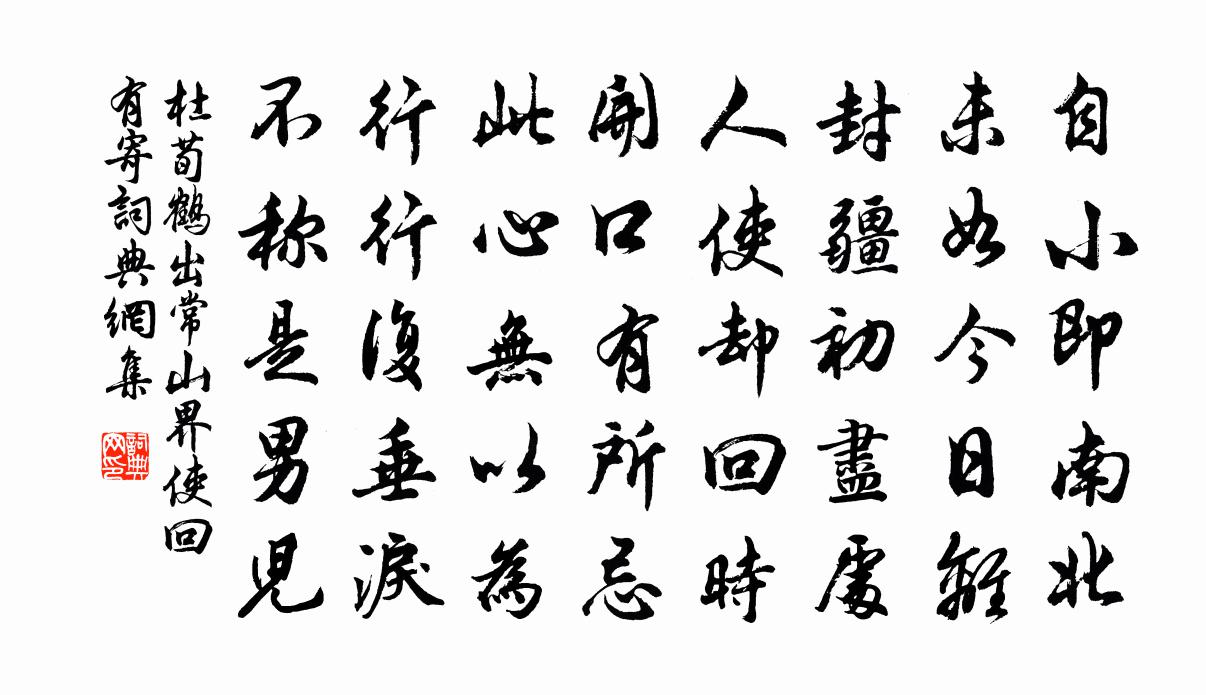 自小即南北
未如今日離
封疆初盡處
人使却回時
開口有所忌
此心無以為
行行復垂淚
不称是男児
杜荀鶴出常山界使回
有寄詞典網集
詞典
网印